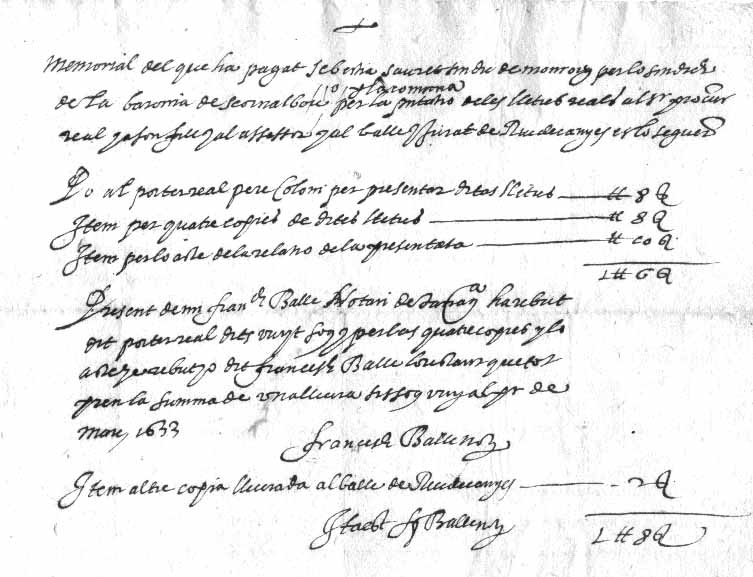 Memorial del que ha pagat Sebestia Sauret sindic de monroig per lo sindicat
y la comuna
de la baronia de scornalbou per la pntatio de les lletres reals al Sr procur
real y a son fill y al assessor y al balle y Jurat de Riudecanyes es lo seguent
Po al porter real pere Colom per presentar dites lletres — tt 8 S
Item per quatre copies de dites lletres — tt 8 S
Item per lo acte de la relatio de la presentata — tt 10 S
1 tt 6 S
Present de mi franch Balle Notari de ha rebut
dit porter real dits vuyt sous y per las quatre copies y lo
acte he rebut jo dit francesch Balle los quetot
pren la summa de una lliura sis sous vuy al pr de
mars 1633
francesch Balle not
Item altre copia lliurada al balle de Riudecanyes — 2 S
Ita est Balle not
1 tt 8 S